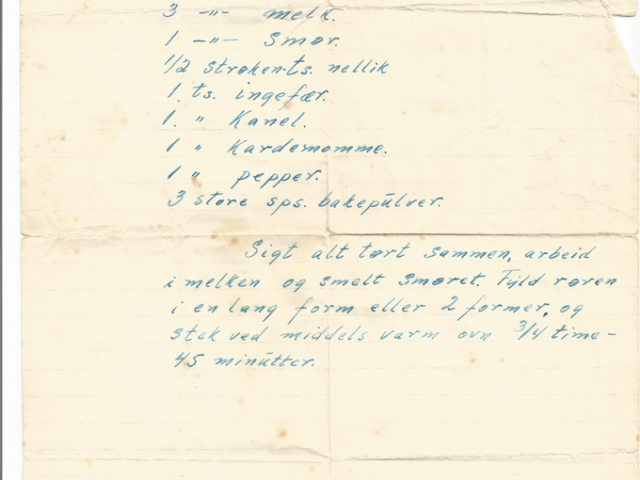 3 -"- melk.
1 -"- Smør.
1/2 strøken ts. nellik
1. ts. ingefær.
1. " Kanel.
1 " Kardemomme.
1 " pepper.
3 store sps. bakepulver.
Sigt alt tørt sammen, arbeid
i melken og smelt smøret. Fyld røren
i en lang form eller 2 former, og
stek ved middels varm ovn 3/4 time-
45 minutter.